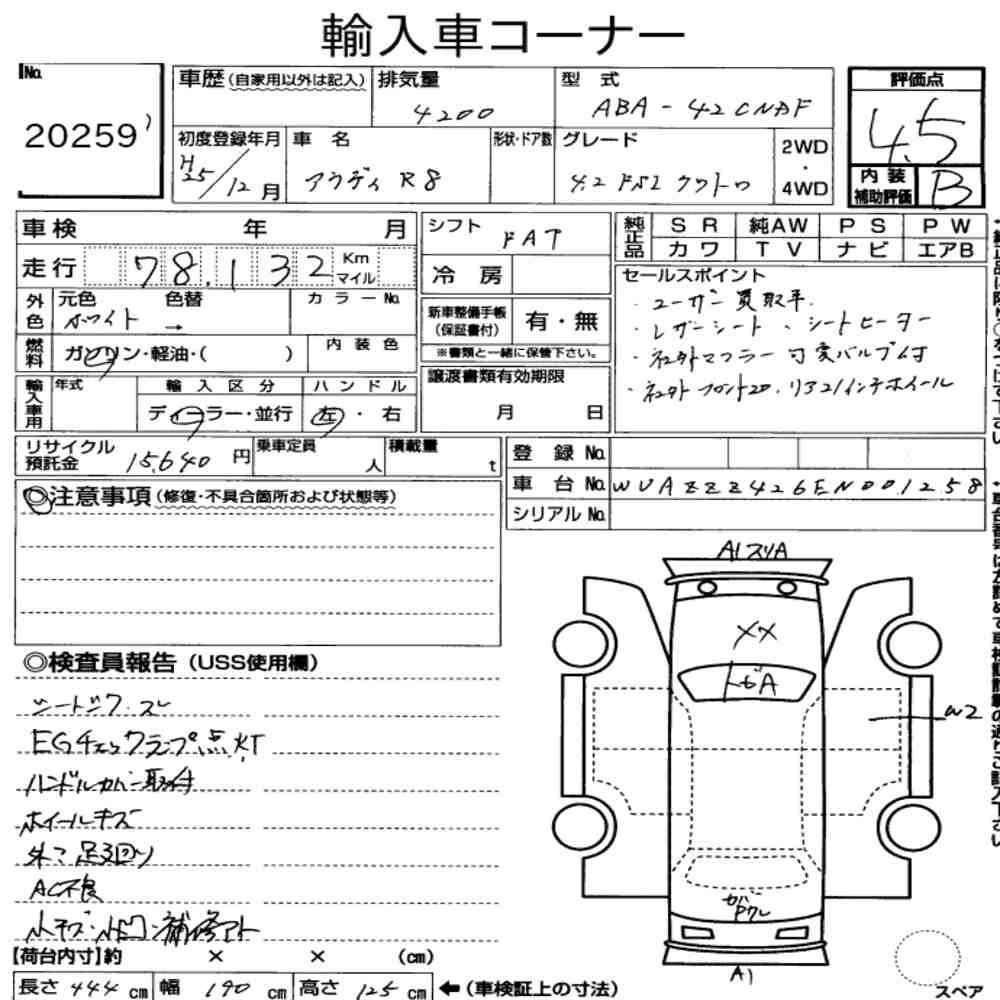 輸入車コーナー
No.
20259
車歴(自家用以外は記入)
排気量
4200
型 式
ABA-42CNDF
評価点
4.5
初度登録年月
H25/12月
車 名
アウディ R8
形状・ドア数
グレード
4.2 FSI クワトロ
2WD
・
4WD
内 装
補助評価
B
車検 年 月
走行 78,132 Km マイル
外色
元色 色替
ホワイト →
カラーNo.
燃料
ガソリン・軽油・( )
内装色
輸入車用
年式
輸入区分
ディーラー・並行
ハンドル
左・右
シフト
FAT
冷房
新車整備手帳
(保証書付)
有・無
※書類と一緒に保管下さい。
譲渡書類有効期限
月 日
純正品
SR 純AW PS PW
カワ TV ナビ エアB
セールスポイント
・ユーザー買取車.
・レザーシート、シートヒーター
・社外マフラー可変バルブ付
・社外フロント20.リア21インチホイール
リサイクル
預託金
15,640円
乗車定員
人
積載量
t
登録No.
車台No. WUAZZZ426EN001258
シリアルNo.
◎注意事項(修復・不具合箇所および状態等)
◎検査員報告(USS使用欄)
シートシワ・スレ
EGチェックランプ点灯
ハンドルカバー取付
ホイールキズ
外マ 足回り
AC不良
小キズ・小凹・補修アト
A1スリA
XX
トビA
W2
カバー
Pクレ
A1
スペア
【荷台内寸】約 × × (cm)
長さ 444 cm 幅 190 cm 高さ 125 cm ←(車検証上の寸法)